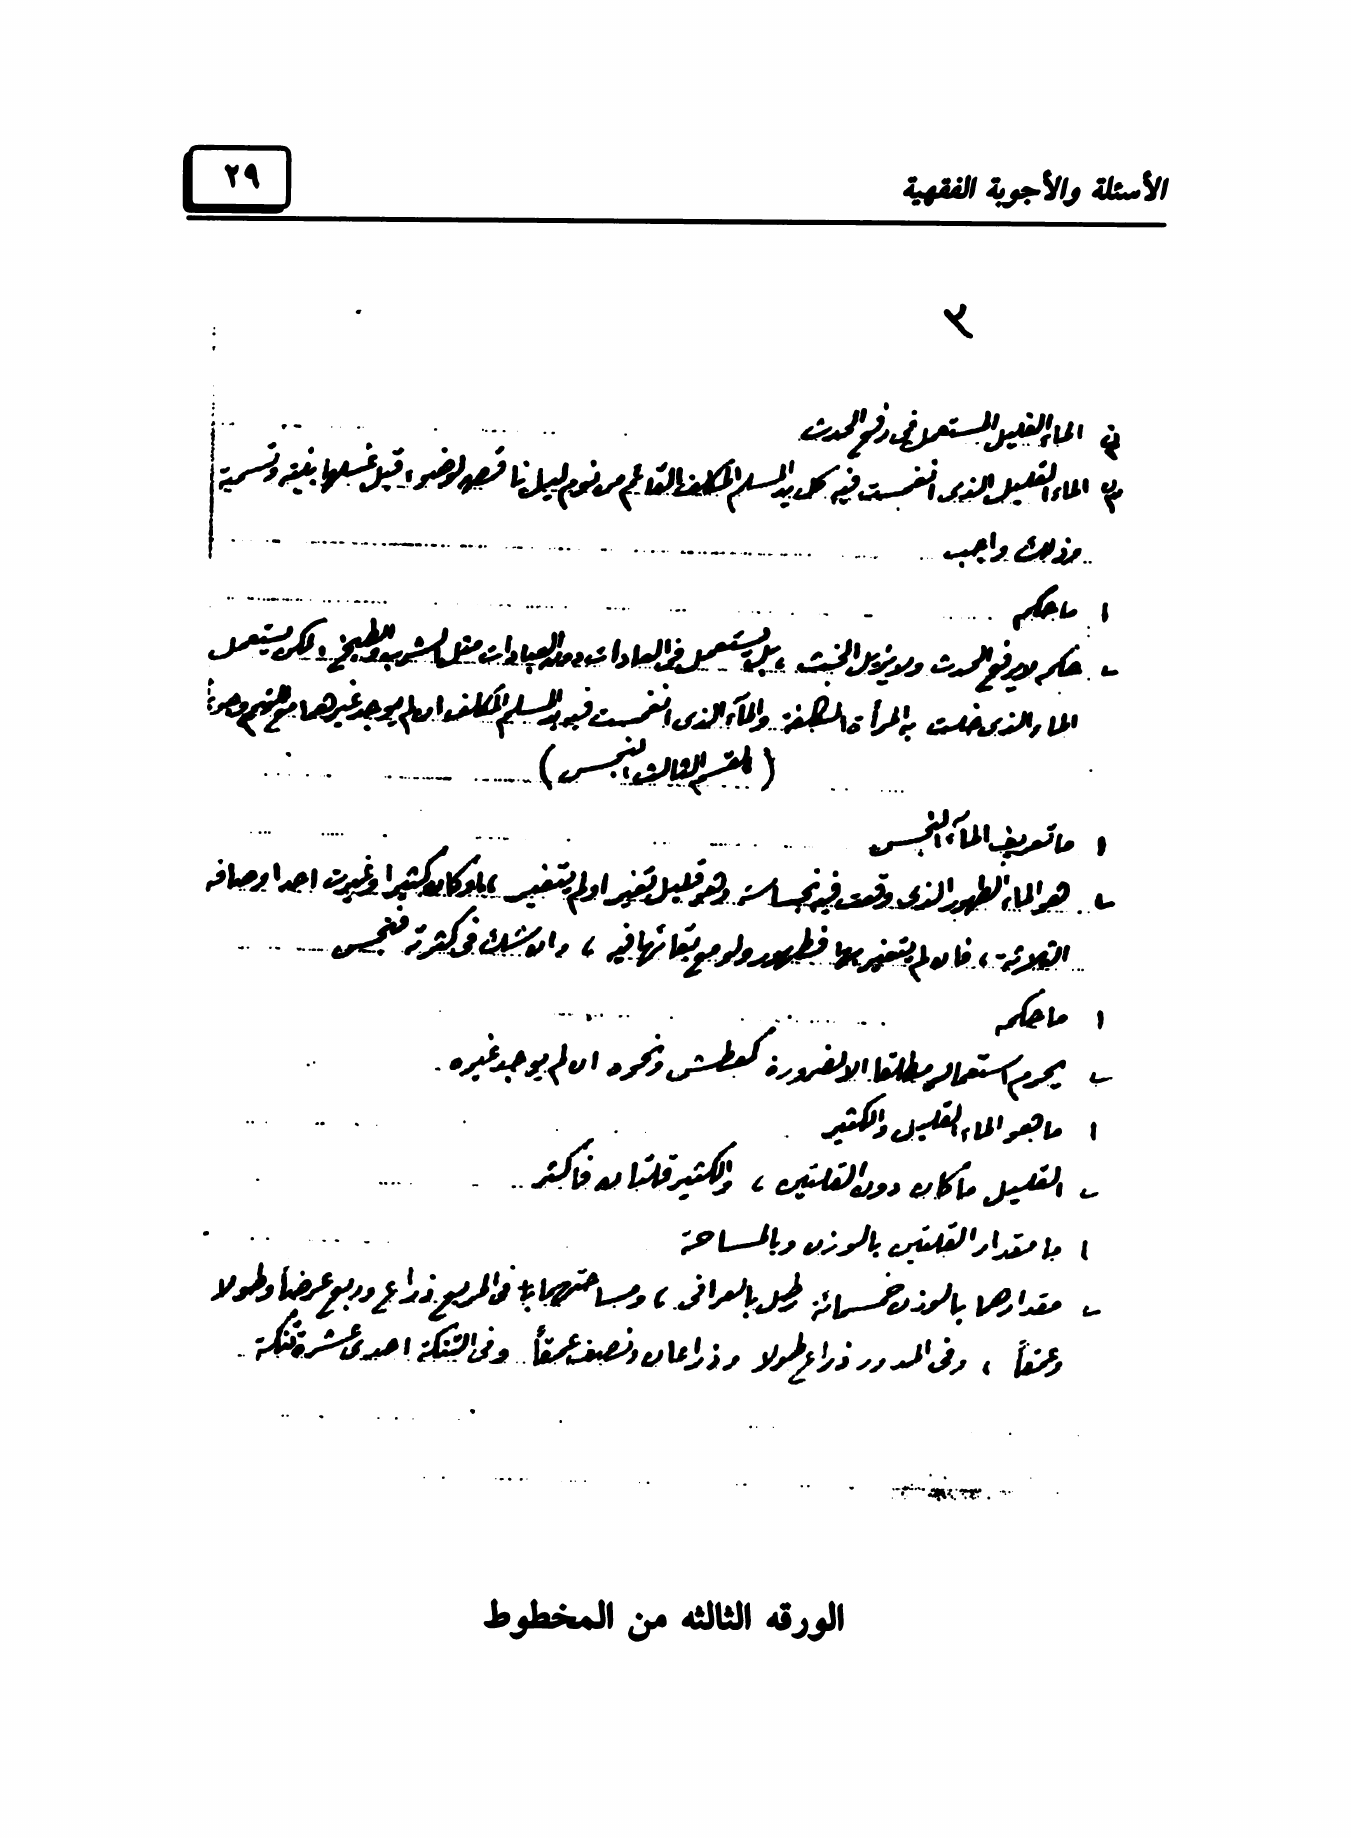 ٢٩
الأسئلة والأجوبة الفقهية
٣
الماء القليل المستعمل في رفع الحدث
الماء القليل الذى انغمست فيه كل يد المسلم المكلف القائم من نوم ليل ناقض لوضوء قبل غسلها بنية وتسمية
وذلك واجب
ا ماحكمه
ب حكمه لا يرفع الحدث ولا يزيل الخبث ، بل يستعمل في العادات دون العبادات مثل الشرب والطبخ ، لكن يستعمل
الماء الذى خلت به المرأة المكلفة والمآء الذى انغمست فيه يد المسلم المكلف ان لم يوجد غيرهما مع التيمم
( القسم الثالث النجس )
ا ما تعريف المآء النجس
ب هو الماء الطهور الذى وقعت فيه نجاسة وهو قليل تغير او لم يتغير ، او كان كثيرا وغيرت احد اوصافه
الثلاثة ، فان لم يتغير بها فطهور ولو مع بقائها فيه ، وان شك في كثرته فنجس
ا ماحكمه
ب يحرم استعماله مطلقا الا لضرورة كعطش ونحوه ان لم يوجد غيره .
ا ما هو الماء القليل والكثير
ب القليل ما كان دون القلتين ، والكثير قلتان فأكثر
ا ما مقدار القلتين بالوزن وبالمساحة
ب مقدارهما بالوزن خمسمائة رطل بالعراقى ، ومساحتهما في المربع ذراع وربع عرضاً وطولا
وعمقاً ، وفى المدور ذراع طولا وذراعان ونصف عمقاً وفى التنكة احدى عشرة تنكة .
الورقه الثالثه من المخطوط